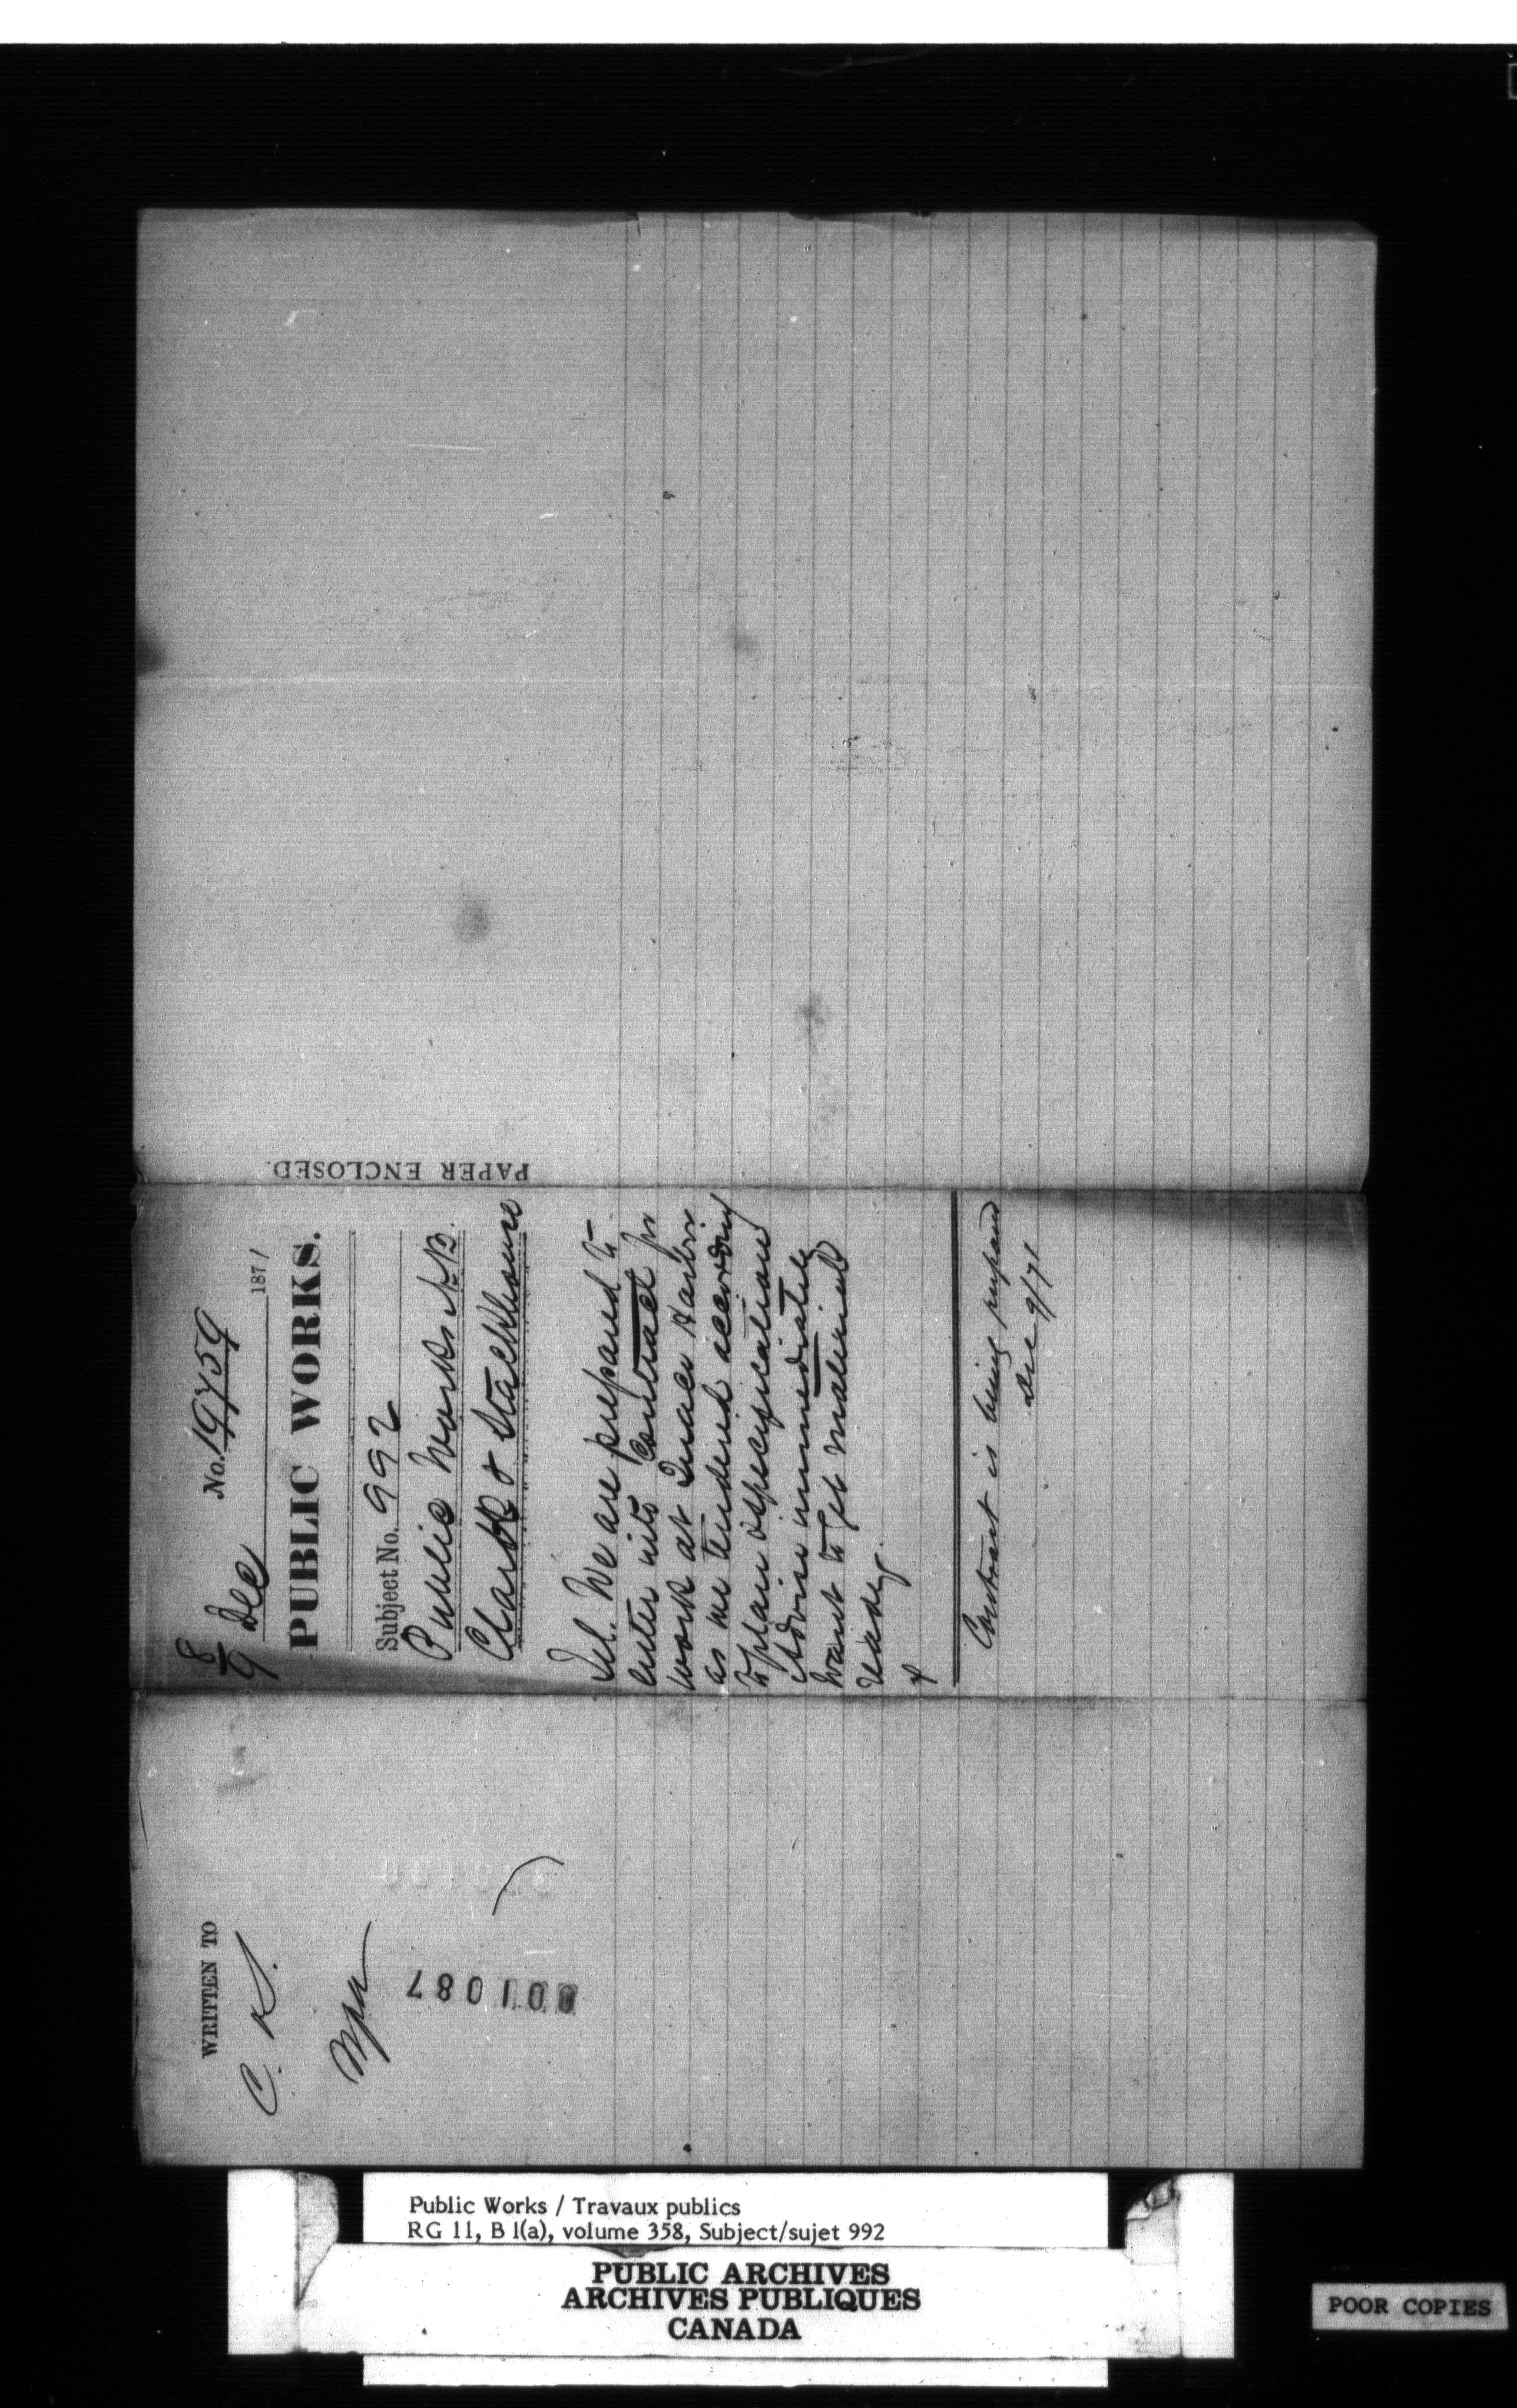 8/9 Dec No. 19759 1871
PUBLIC WORKS.
Subject No. 992
Public Works N.B.
Clark & Stackhouse
Tel. We are prepared to
enter into Contract for
work at Quaco Harbor
as we tendered according
to plan & specification
Advise immediately
want to get material
ready.
Contract is being prepared
Dec 9/71
PAPER ENCLOSED.
WRITTEN TO
C. & S.
001087
Public Works / Travaux publics
RG 11, B 1(a), volume 358, Subject/sujet 992
PUBLIC ARCHIVES
ARCHIVES PUBLIQUES
CANADA
POOR COPIES